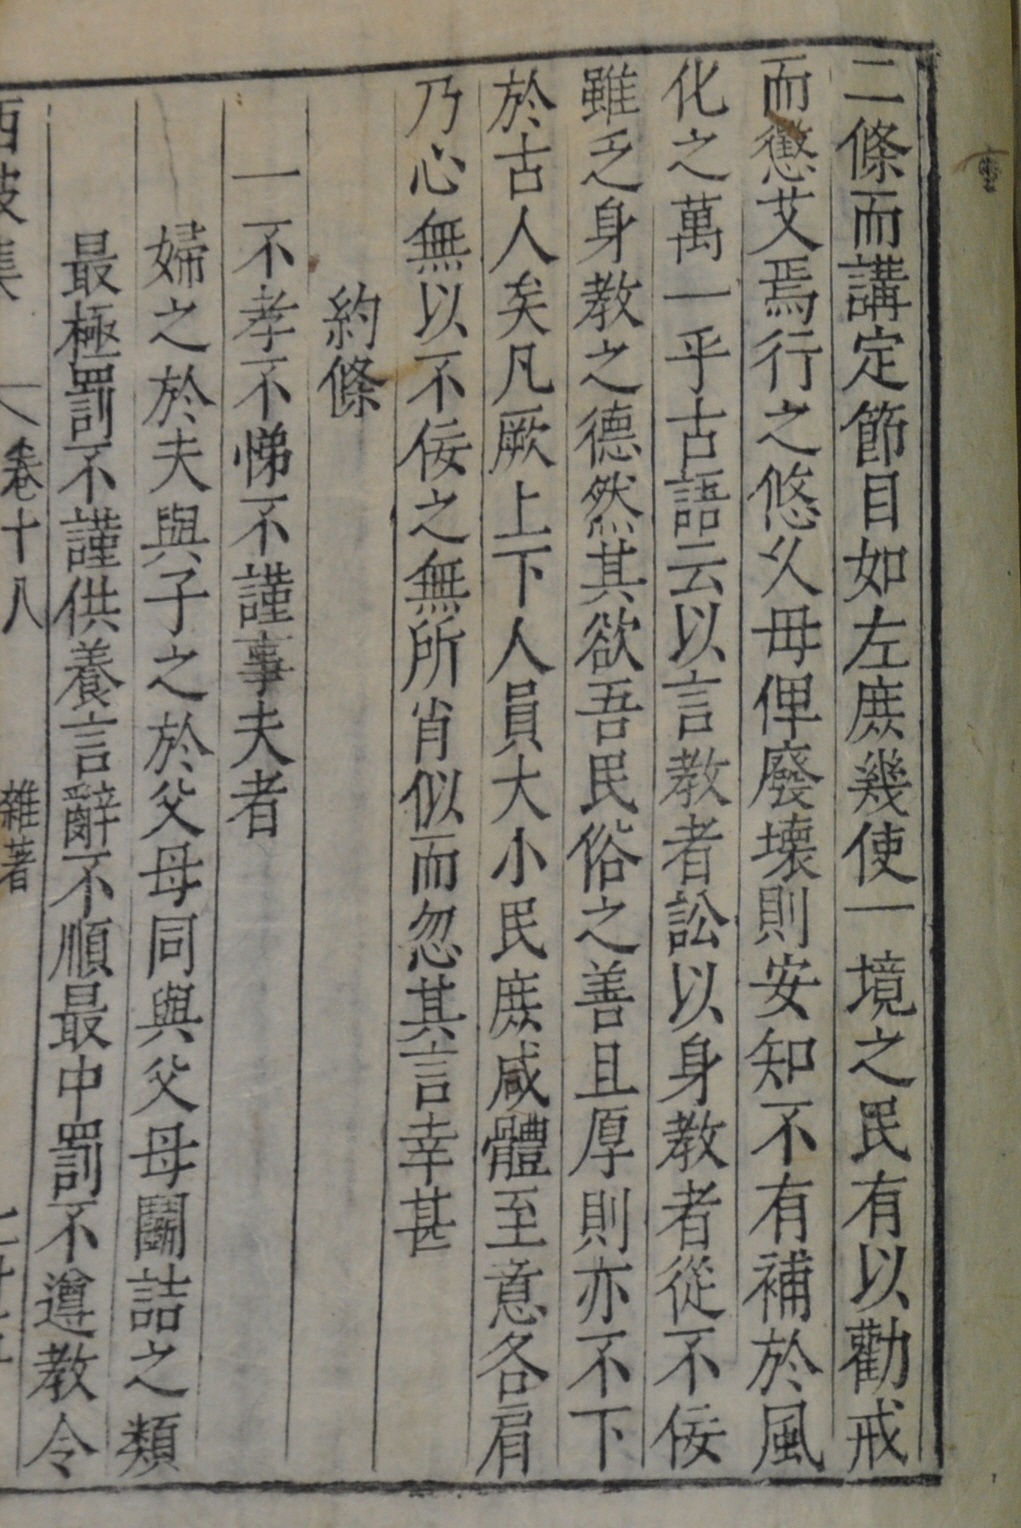 二條而講定節目如左庶幾使一境之民有以勸戒
而懲艾焉行之悠久毋俾廢壞則安知不有補於風
化之萬一乎古語云以言教者訟以身教者從不佞
雖乏身教之德然其欲吾民俗之善且厚則亦不下
於古人矣凡厥上下人員大小民庶咸體至意各肩
乃心無以不佞之無所肖似而忽其言幸甚
約條
一不孝不悌不謹事夫者
婦之於夫與子之於父母同與父母鬪詰之類
最極罰不謹供養言辭不順最中罰不遵教令
卷十八
雜著